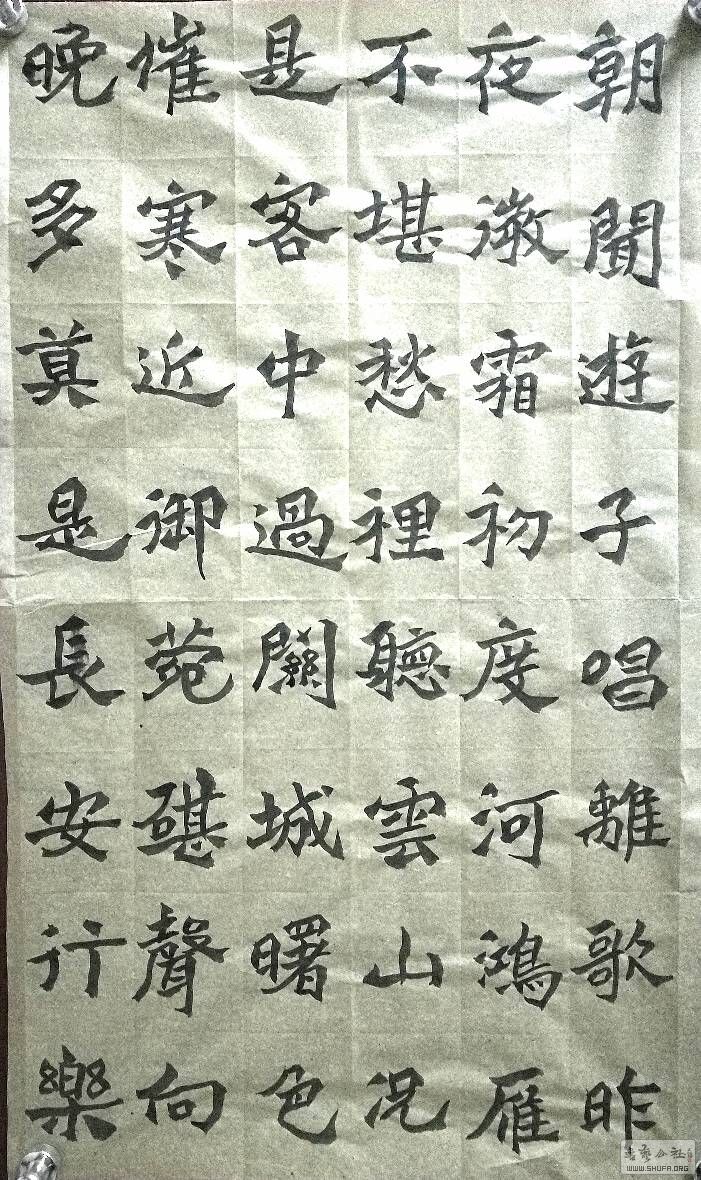 朝聞遊子唱離歌昨
夜微霜初度河鴻雁
不堪愁裡聽雲山況
是客中過關城曙色
催寒近御苑碪聲向
晚多莫是長安行樂
書藝公社
WWW.SHUFA.ORG